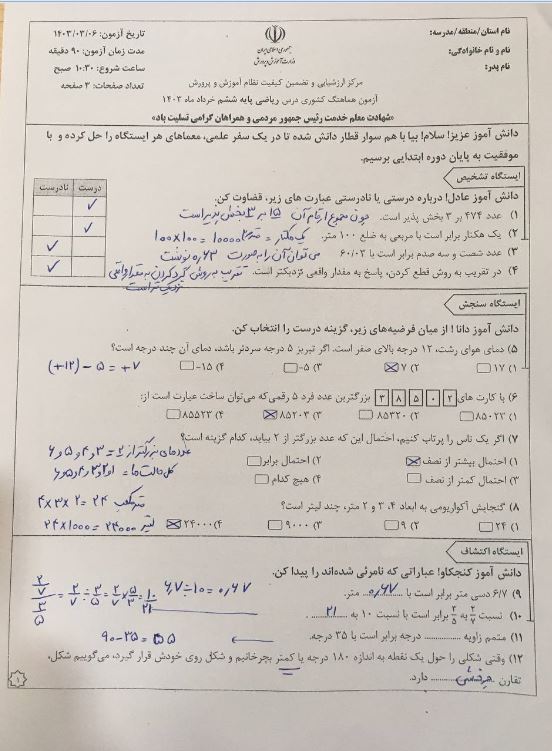 نام استان/منطقه/مدرسه:
نام و نام خانوادگی:
نام پدر:
جمهوری اسلامی ایران
وزارت آموزش و پرورش
تاریخ آزمون: ۱۴۰۳/۰۳/۰۶
مدت زمان آزمون: ۹۰ دقیقه
ساعت شروع: ۱۰:۳۰ صبح
تعداد صفحات: ۳ صفحه
مرکز ارزشیابی و تضمین کیفیت نظام آموزش و پرورش
آزمون هماهنگ کشوری درس ریاضی پایه ششم خرداد ماه ۱۴۰۳
«شهادت معلم خدمت رئیس جمهور مردمی و همراهان گرامی تسلیت باد»
دانش آموز عزیز! سلام! بیا با هم سوار قطار دانش شده تا در یک سفر علمی، معماهای هر ایستگاه را حل کرده و با
موفقیت به پایان دوره ابتدایی برسیم.
ایستگاه تشخیص
درست نادرست
دانش آموز عادل! درباره درستی یا نادرستی عبارت های زیر، قضاوت کن.
۱) عدد ۴۷۴ بر ۳ بخش پذیر است. چون مجموع ارقام آن ۱۵ بر ۳ بخش پذیر است
۲) یک هکتار برابر است با مربعی به ضلع ۱۰۰ متر. یک هکتار = ۱۰۰×۱۰۰=۱۰۰۰۰
۳) عدد شصت و سه صدم برابر است با ۶۰/۰۳ می توان آن را به صورت ۰٫۶۳ نوشت
۴) در تقریب به روش قطع کردن، پاسخ به مقدار واقعی نزدیکتر است. تقریب به روش گرد کردن به مقدار واقعی
نزدیک تر است
ایستگاه سنجش
دانش آموز دانا! از میان فرضیه‌های زیر، گزینه درست را انتخاب کن.
۵) دمای هوای رشت، ۱۲ درجه بالای صفر است. اگر تبریز ۵ درجه سردتر باشد، دمای آن چند درجه است؟
۱) ۱۷ ۲) ۷ ۳) ۵- ۴) ۱۵- (+۱۲) – ۵ = +۷
۶) با کارت های ۳ ۸ ۵ ۰ ۲ بزرگترین عدد فرد ۵ رقمی که می‌توان ساخت عبارت است از:
۱) ۸۵۰۲۳ ۲) ۸۵۳۲۰ ۳) ۸۵۲۰۳ ۴) ۸۵۵۲۳
۷) اگر یک تاس را پرتاب کنیم، احتمال این که عدد بزرگتر از ۲ بیاید، کدام گزینه است؟
عددهای بزرگتر از ۲ = ۳ و ۴ و ۵ و ۶
۱) احتمال بیشتر از نصف ۲) احتمال برابر
کل حالت ها = ۱ و ۲ و ۳ و ۴ و ۵ و ۶
۳) احتمال کمتر از نصف ۴) هیچ کدام
۸) گنجایش آکواریومی به ابعاد ۴، ۳ و ۲ متر، چند لیتر است؟ ۴×۳×۲=۲۴ متر مکعب
۱) ۲۴ ۲) ۹ ۳) ۹۰۰۰ ۴) ۲۴۰۰۰ ۲۴×۱۰۰۰=۲۴۰۰۰ لیتر
ایستگاه اکتشاف
دانش آموز کنجکاو! عباراتی که نامرئی شده‌اند را پیدا کن.
۹) ۶/۷ دسی متر برابر است با ۰٫۶۷ متر. ۶٫۷÷۱۰=۰٫۶۷
۱۰) نسبت ۲/۷ به ۳/۵ برابر است با نسبت ۱۰ به ۲۱ ۲/۷ ÷ ۳/۵ = ۲/۷ × ۵/۳ = ۱۰/۲۱
۱۱) متمم زاویه ........ درجه برابر است با ۳۵ درجه. ۹۰-۳۵=۵۵
۱۲) وقتی شکلی را حول یک نقطه به اندازه ۱۸۰ درجه یا کمتر بچرخانیم و شکل روی خودش قرار گیرد، می‌گوییم شکل،
تقارن چرخشی دارد.
۱